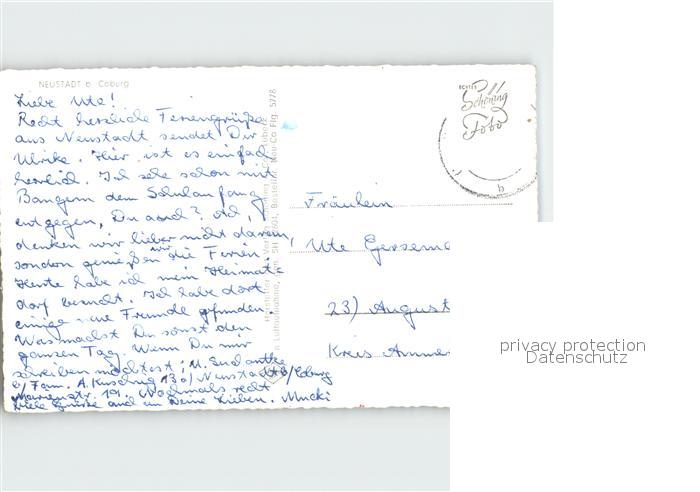 NEUSTADT b. Coburg
Liebe Ute!
Recht herzliche Feriengrüße
aus Neustadt sendet Dir
Ulrike. Hier ist es einfach
herrlich. Ich sehe schon mit
Bangem dem Schulanfang
entgegen, Du auch? Ach,
denken wir lieber nicht daran,
sondern genießen wir die Ferien.
Heute habe ich mein Heimat-
dorf besucht. Ich habe dort
einige neue Freunde gefunden.
Was machst Du sonst den
ganzen Tag. Wenn Du mir
schreiben möchtest: M.
b/ Fam. A. 13a) Neustadt b/Cobrg
19. Nochmals recht
viele Grüße auch an Deine Lieben. Mucki
Schöning & Co., Lübeck
5778
ECHTES
Schöning
Foto
b
Fräulein
Ute
23) August
Kreis
privacy protection
Datenschutz